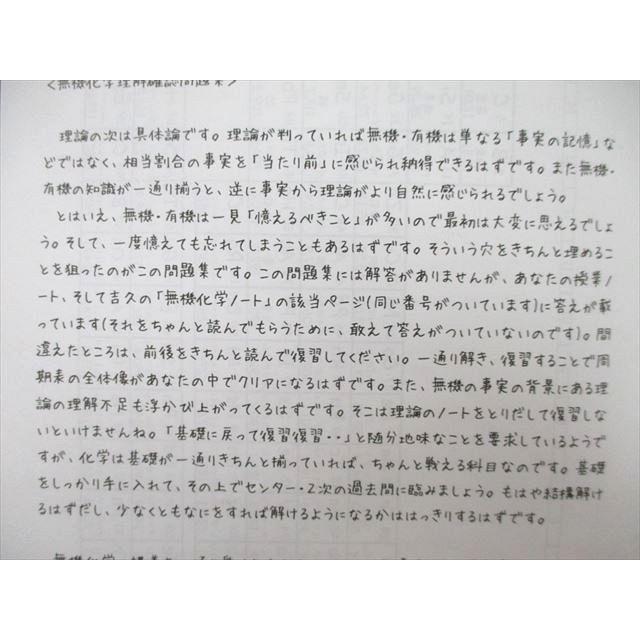 <無機化学理解確認問題集>
理論の次は具体論です。理論が判っていれば無機・有機は単なる「事実の記憶」な
どではなく、相当割合の事実を「当たり前」に感じられ納得できるはずです。また無機・
有機の知識が一通り揃うと、逆に事実から理論がより自然に感じられるでしょう。
とはいえ、無機・有機は一見「憶えるべきこと」が多いので最初は大変に思えるでしょ
う。そして、一度憶えても忘れてしまうこともあるはずです。そういう穴をきちんと埋めるこ
とを狙ったのがこの問題集です。この問題集には解答がありませんが、あなたの授業ノ
ート、そして吉久の「無機化学ノート」の該当ページ(同じ番号がついています)に答えが載
っています(それをちゃんと読んでもらうために、敢えて答えがついていないのです)。間
違えたところは、前後をきちんと読んで復習してください。一通り解き、復習することで周
期表の全体像があなたの中でクリアになるはずです。また、無機の事実の背景にある理
論の理解不足も浮かび上がってくるはずです。そこは理論のノートをとりだして復習しな
いといけませんね。「基礎に戻って復習復習・・」と随分地味なことを要求しているようで
すが、化学は基礎が一通りきちんと揃っていれば、ちゃんと戦える科目なのです。基礎
をしっかり手に入れて、その上でセンター・2次の過去問に臨みましょう。もはや結構解け
るはずだし、少なくともなにをすれば解けるようになるかははっきりするはずです。